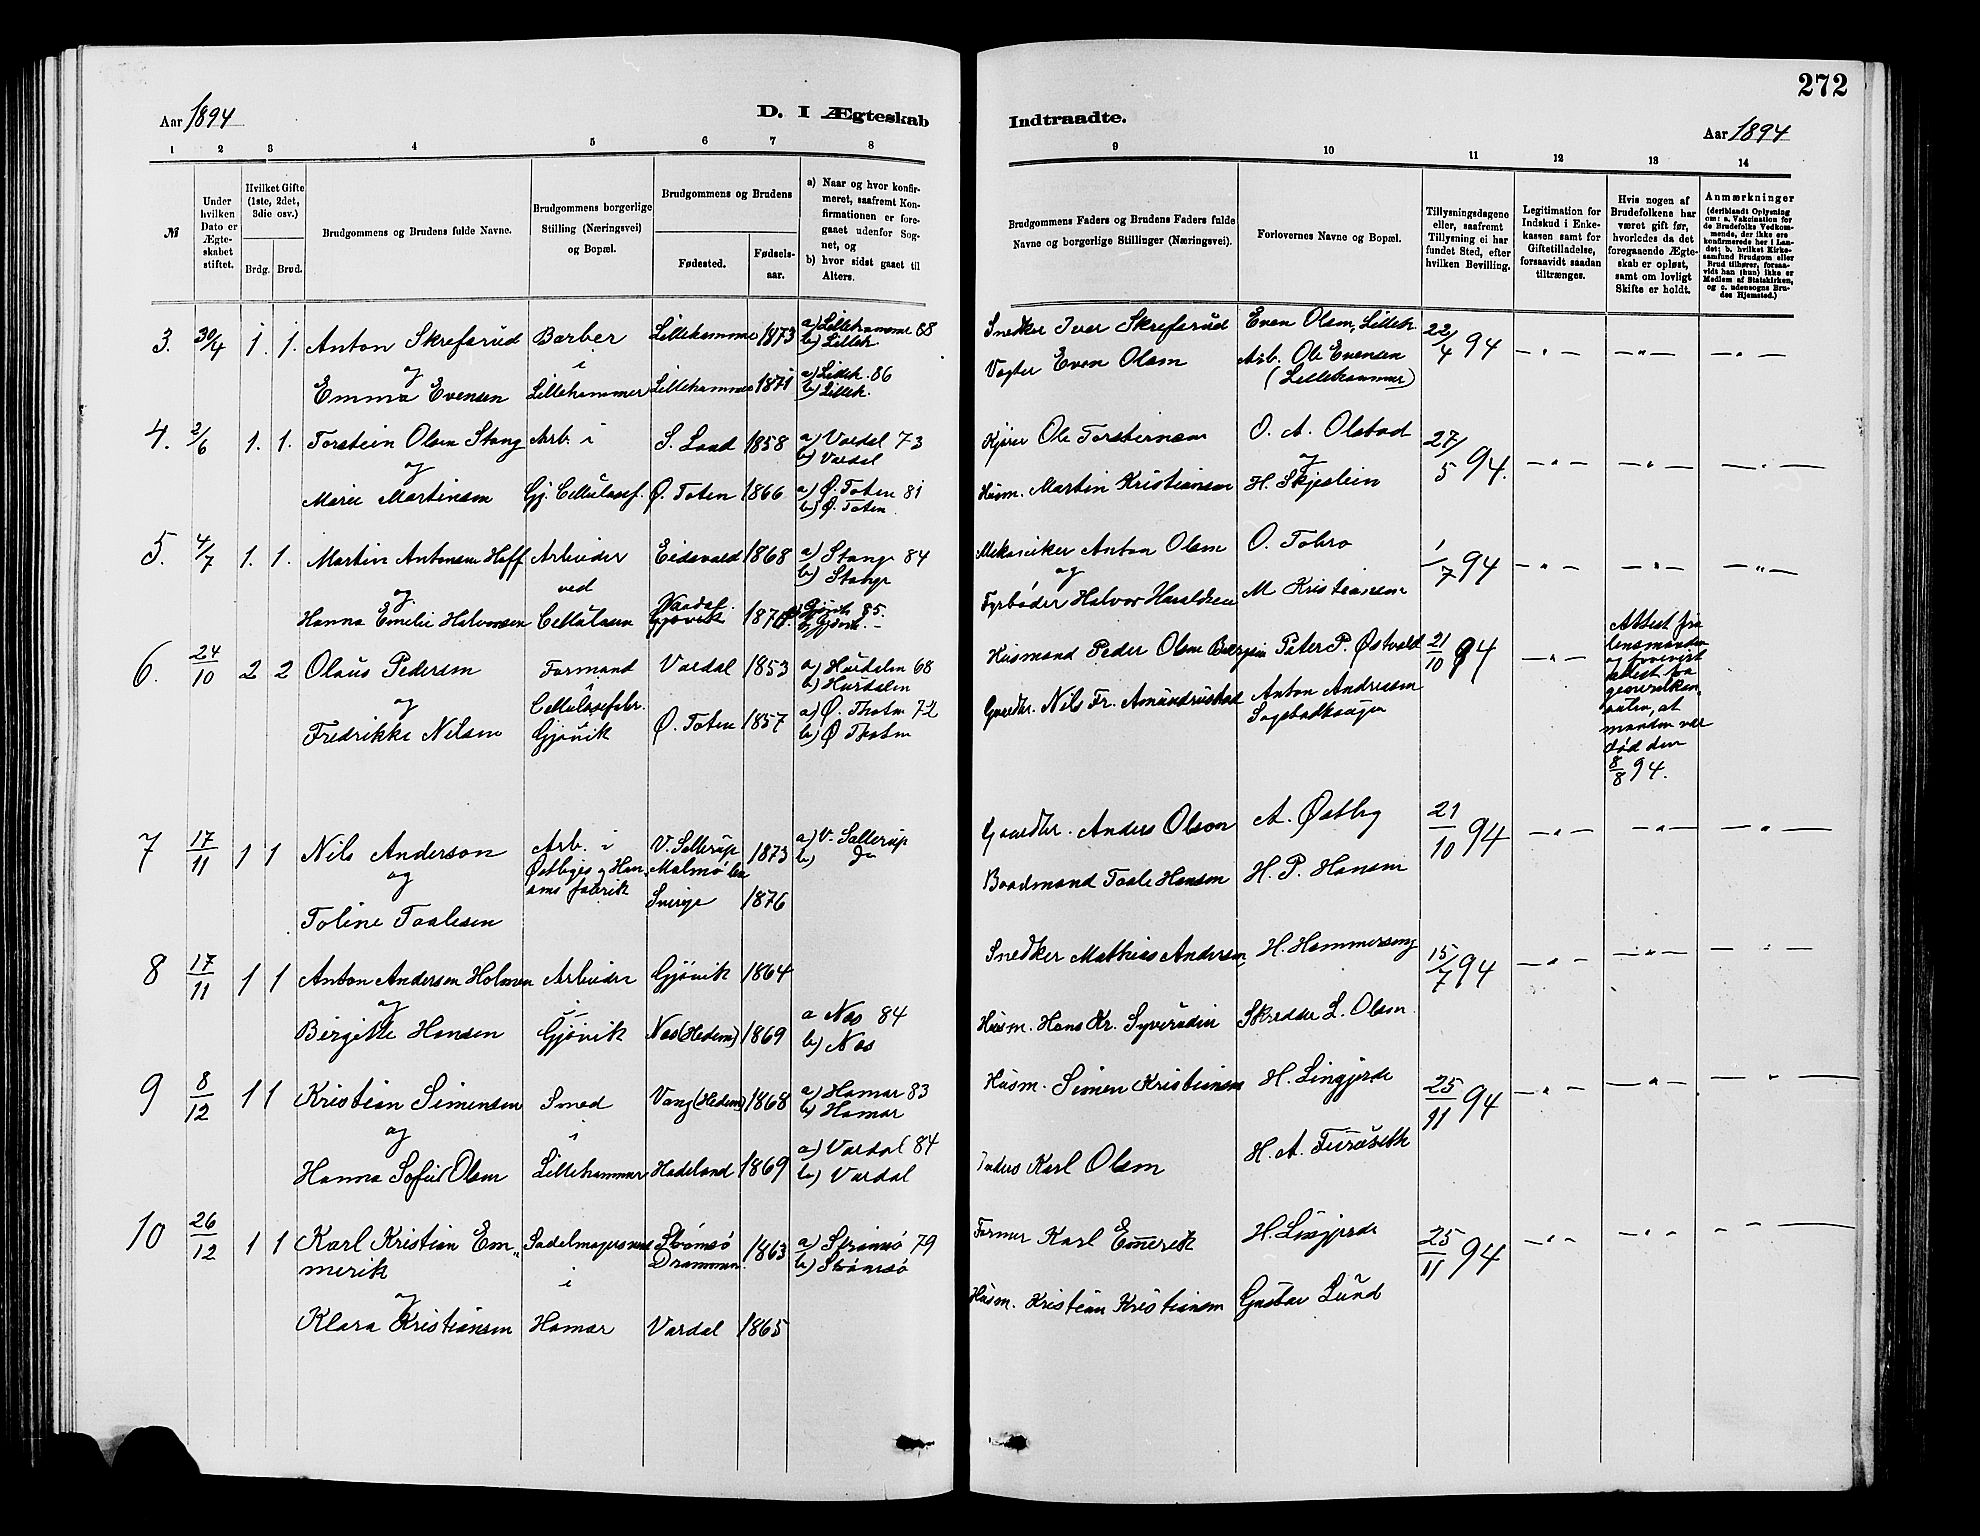 272
Aar 1894 D. I Ægteskab Indtraadte. Aar 1894
1 2 3 4 5 6 7 8 9 10 11 12 13 14
№
Under hvilken Dato er Ægteskabet stiftet.
Hvilket Gifte (1ste, 2det, 3die osv.)
Brdg. Brud.
Brudgommens og Brudens fulde Navne.
Brudgommens borgerlige Stilling (Næringsvei) og Bopæl.
Brudgommens og Brudens
Fødested. Fødselsaar.
a) Naar og hvor konfirmeret, saafremt Konfirmationen er foregaaet udenfor Sognet, og
b) hvor sidst gaaet til Alters.
Brudgommens Faders og Brudens Faders fulde Navne og borgerlige Stillinger (Næringsvei).
Forlovernes Navne og Bopæl.
Tillysningsdagene eller, saafremt Tillysning ei har fundet Sted, efter hvilken Bevilling.
Legitimation for Indskud i Enkekassen samt for Giftetilladelse, forsaavidt saadan tiltrænges.
Hvis nogen af Brudefolkene har været gift før, hvorledes da det foregaaende Ægteskab er opløst, samt om lovligt Skifte er holdt.
Anmærkninger (deriblandt Oplysning om: a. Vakcination for de Brudefolks Vedkommende, der ikke ere konfirmerede her i Landet; b. hvilket Kirkesamfund Brudgom eller Brud tilhører, forsaavidt han (hun) ikke er Medlem af Statskirken, og c. udensogns Brudes Hjemsted.)
3. 30/4 1. 1. Anton Skrefsrud Barber Lillehamme 1873 a) Lillehamme 88 Snedker Iver Skrefsrud Even Olsen, Lilleh. 22/4 94 — " — — " — — " —
og i b) Lilleh.
Emma Evensen Lillehammer Lillehammer 1871 a) Lilleh. 86 Vogter Even Olsen Arb. Ole Evensen
b) Lilleh. (Lillehammer)
4. 2/6 1. 1. Torstein Olsen Stang Arb. i S. Land 1858 a) Vardal 73 Kjører Ole Torstensen O. A. Olstad 27/5 94. — " — — " — — " —
og b) Vardal og
Marie Martinsen Gj. Cellulosef. Ø. Toten 1866 a) Ø. Toten 81 Husm. Martin Kristiansen H. Skjeslein
b) Ø. Toten
5. 4/7 1. 1. Martin Antonsen Hoff Arbeider Eidsvold 1868 a) Stange 84 Mekaniker Anton Olsen O. Tobro 1/7 94 — " — — " — — " —
og ved b) Stange og
Hanna Emelie Halvorsen Cellulosen Vardal Gjøvik a) Gjøvik 85. Fyrbøder Halvor Haraldsen M Kristiansen
b) Gjøvik
6. 24/10 2 2 Olaus Pedersen Formand Vardal 1853 a) Hurdalen 68 Husmand Peder Olsen Peter P. Østvold 21/10 94 — " — Attest fra
og i Cellulosefabr. b) Hurdalen lensmanden
Fredrikke Nilsen Gjøvik Ø. Toten 1857 a) Ø. Thoten 72 Gaardbr. Nils Fr. Amundrustad Anton Andresen
b) Ø Thoten
at
manden var
død den
8/8 94.
7 17/11 1 1 Nils Anderson Arb. i V. Sallerup 1873 a) V. Sallerup Gaardbr. Anders Olson A. Østby 21/10 94 — " — — " — — " —
og Østbyes & Hansens fabrik Malmö län b) Do
Toline Taalesen Sverige 1876 Baadmand Taale Hansen H. P. Hansen
8 17/11 1 1 Anton Andersen Holmen Arbeider Gjøvik 1864 Snedker Mathias Andersen H. Hammerseng 15/7 94 — " — — " — — " —
og i
Birgitte Hansen Gjøvik Nes (Hedem) 1869 a Nes 84 Husm. Hans Kr. Syversdin Skrædder L. Olsen.
b) Nes
9 8/12 1 1 Kristian Simensen Smed Vang (Hedem) 1868 a) Hamar 83 Husm. Simen Kristiansen H. Lingjerde 25/11 94 — " — — " — — " —
og i b) Hamar
Hanna Sofie Olsen Lillehammer Hadeland 1869 a) Vardal 84 Inders Karl Olsen H. A. Furuseth
b) Vardal
10 26/12 1 1 Karl Kristian Em- Sadelmagersvend Strømsø 1863 a) Strømsø 79 Former Karl Emerik H. Lingjerde 25/11 94 — " — — " — — " —
merik i Drammen. b) Strømsø
og
Klara Kristiansen Hamar Vardal 1865 Husm. Kristian Kristiansen Gustav Lund